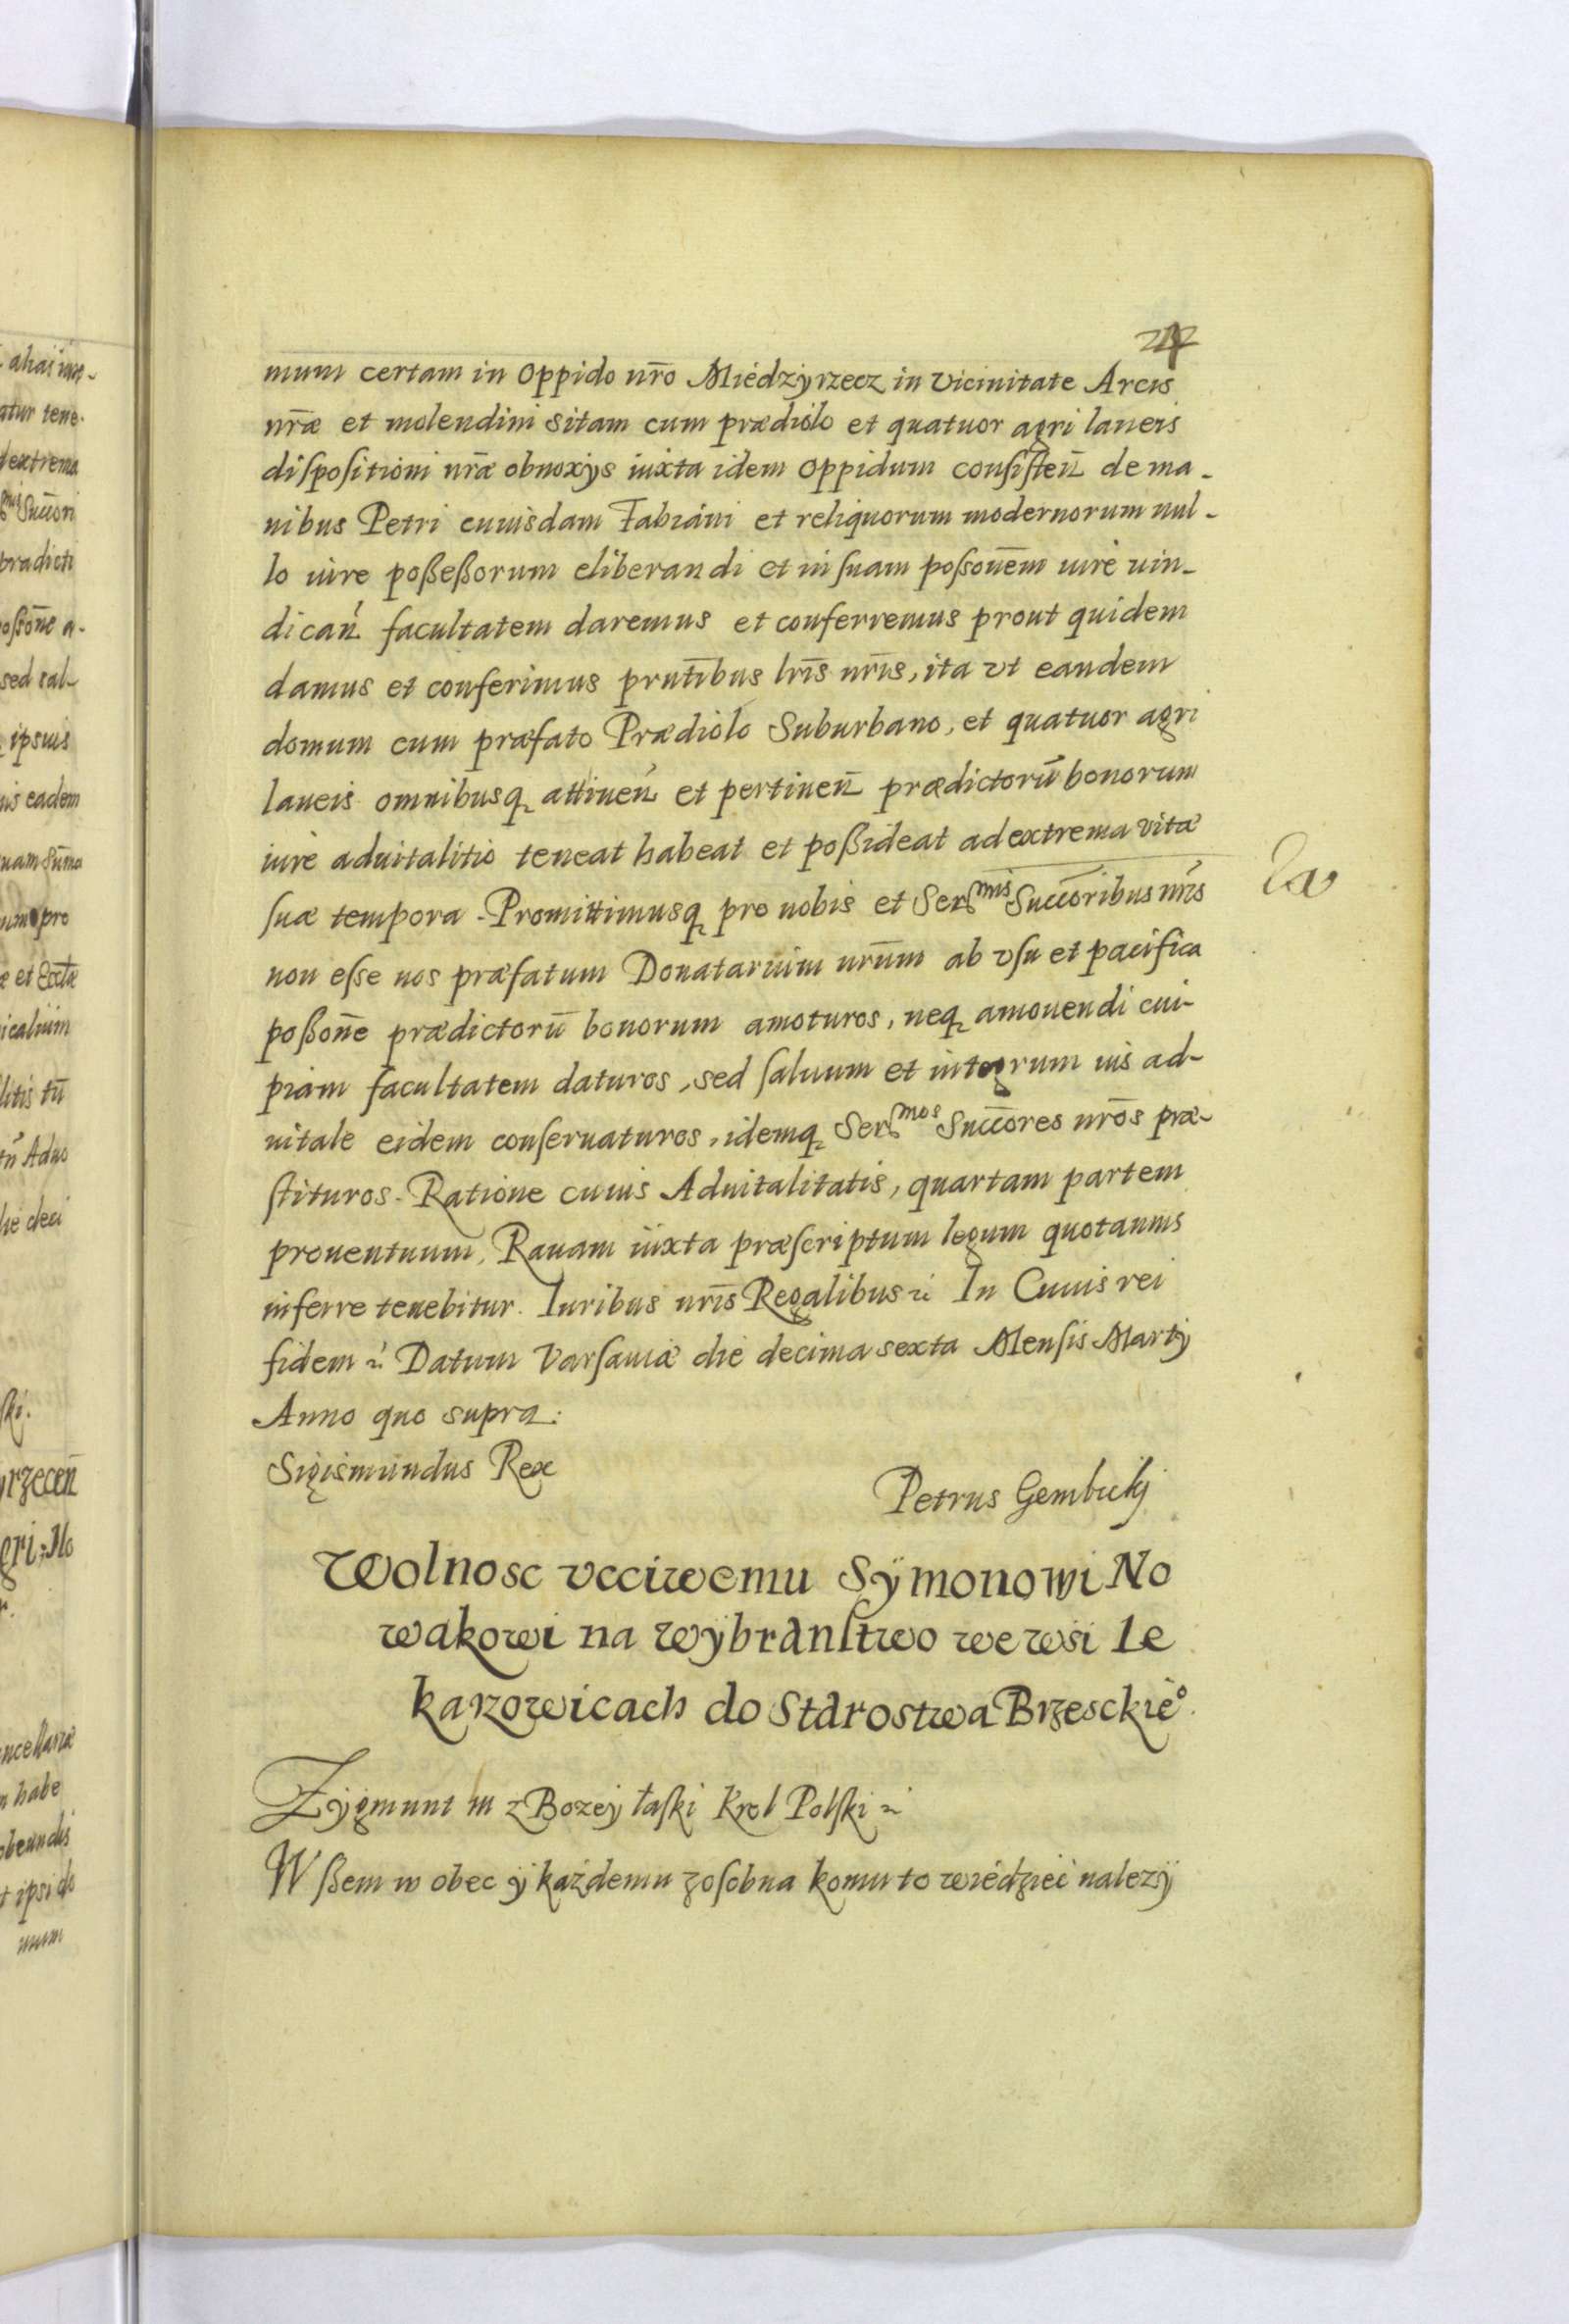 mum certam in Oppido nr̄o Miedzyrzecz in vicinitate Arcis
nr̄æ et molendini sitam cum prædiolo et quatuor agri laneis
dispositioni nr̄æ obnoxijs iuxta idem Oppidum consisten̄ de ma-
nibus Petri cuiusdam Fabiani et reliquorum modernorum nul-
lo iure poßeßorum eliberandi et in suam poßoēm iure uin-
dicań facultatem daremus et conferremus prout quidem
damus et conferimus pr̄ntibus lr̄is nr̄is, ita vt eandem
domum cum præfato Prædiolo Suburbano, et quatuor agri
laneis omnibusq attineń et pertinen̄ prædictorū bonorum
iure aduitalitio teneat habeat et poßideat ad extrema vitæ
suæ tempora. Promittimusq pro nobis et Ser^mis Succōribus nr̄is
non esse nos præfatum Donatarium nr̄um ab vsu et pacifica
poßon̄e prædictorū bonorum amoturos, neq amouendi cui-
piam facultatem daturos, sed saluum et integrum ius ad-
uitale eidem conseruaturos, idemq Ser^mos Succōres nr̄os præ-
stituros. Ratione cuius Aduitalitatis, quartam partem
prouentuum, Rauam iuxta præscriptum legum quotannis
inferre tenebitur. Iuribus nr̄is Regalibus &c In Cuius rei
fidem &c Datum Varsauiæ die decima sexta Mensis Martij
Anno quo supra.
Sigismundus Rex
Petrus Gembicki
Wolnosc vcciwemu Sÿmonowi No
wakowi na wÿbranstwo we wsi Le
karzowicach do Starostwa Brzesckie°.
Zÿgmunt III z Bozeÿ łaski Krol Polski &c
Wßem w obec ÿ każdemu zosobna komu to wiedzieć nalezÿ